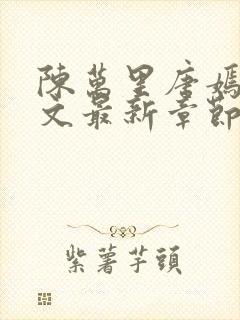 陳萬里唐嫣
文最新章節
紫薯芋頭